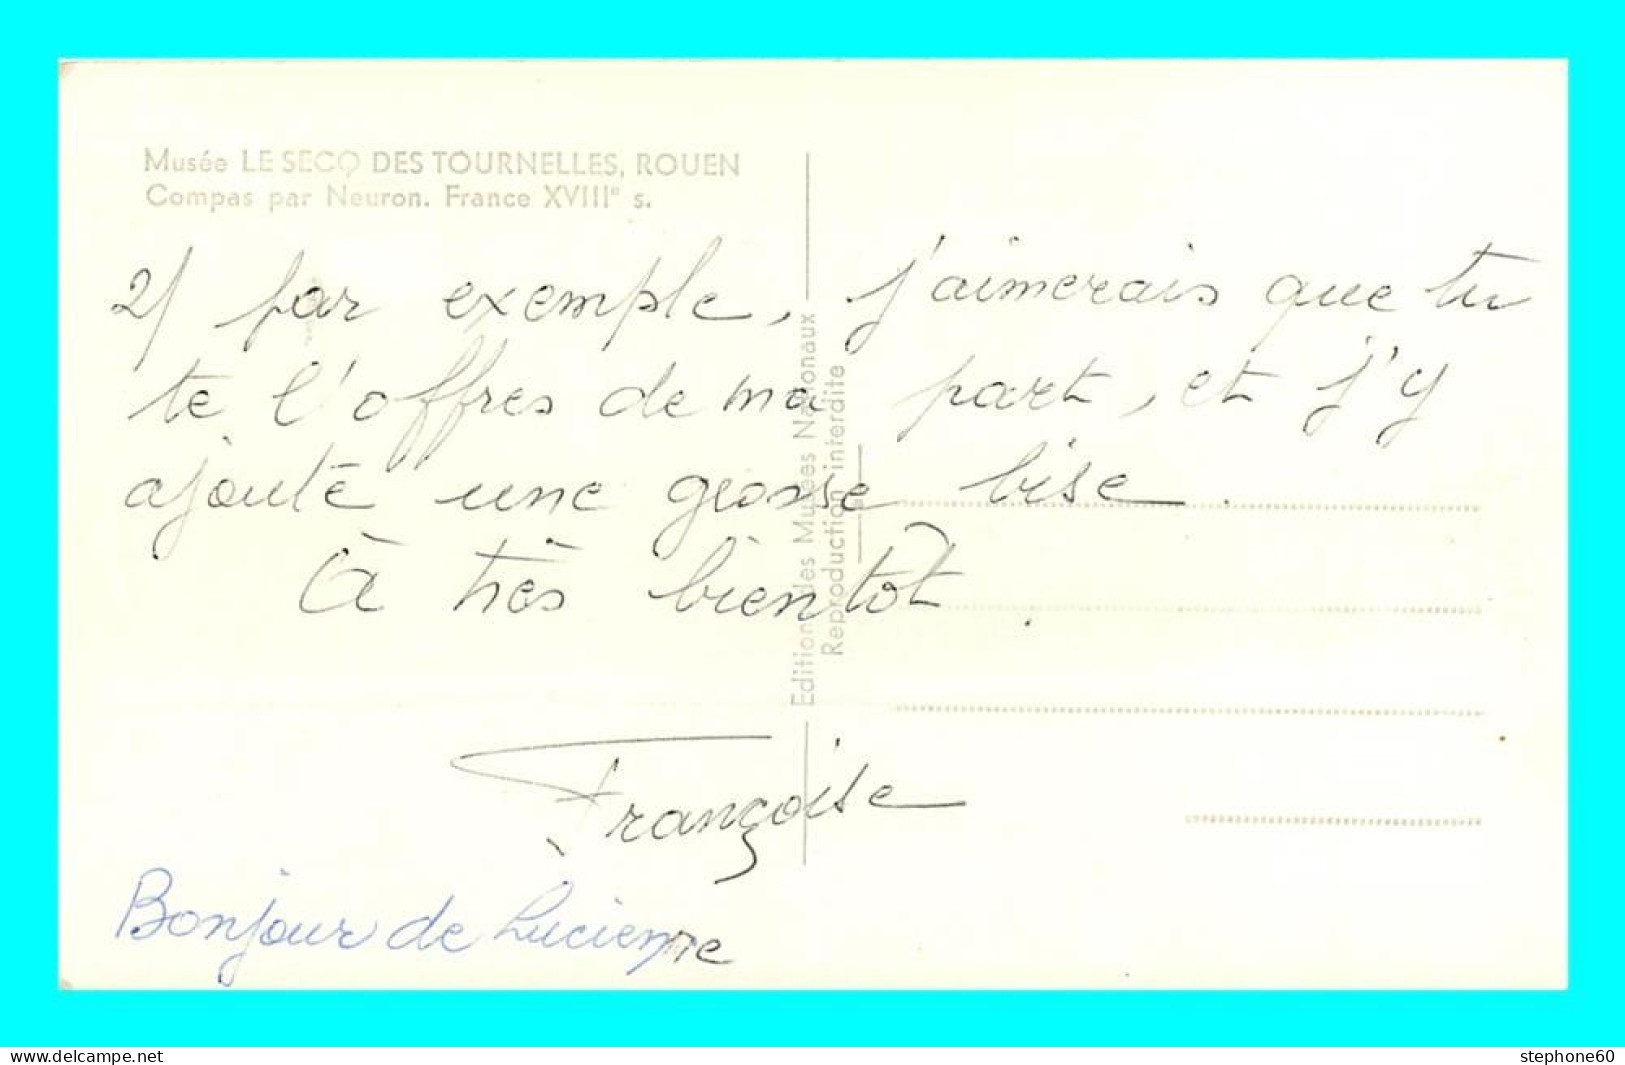 Musée LE SECQ DES TOURNELLES, ROUEN
Compas par Neuron. France XVIIIe s.
2/ par exemple, j'aimerais que tu
te l'offres de ma part, et j'y
ajoute une grosse bise.
à très bientôt.
Françoise
Bonjour de Lucienne
Editions des Musées Nationaux
Reproduction interdite
https://www.delcampe.net
stephone60